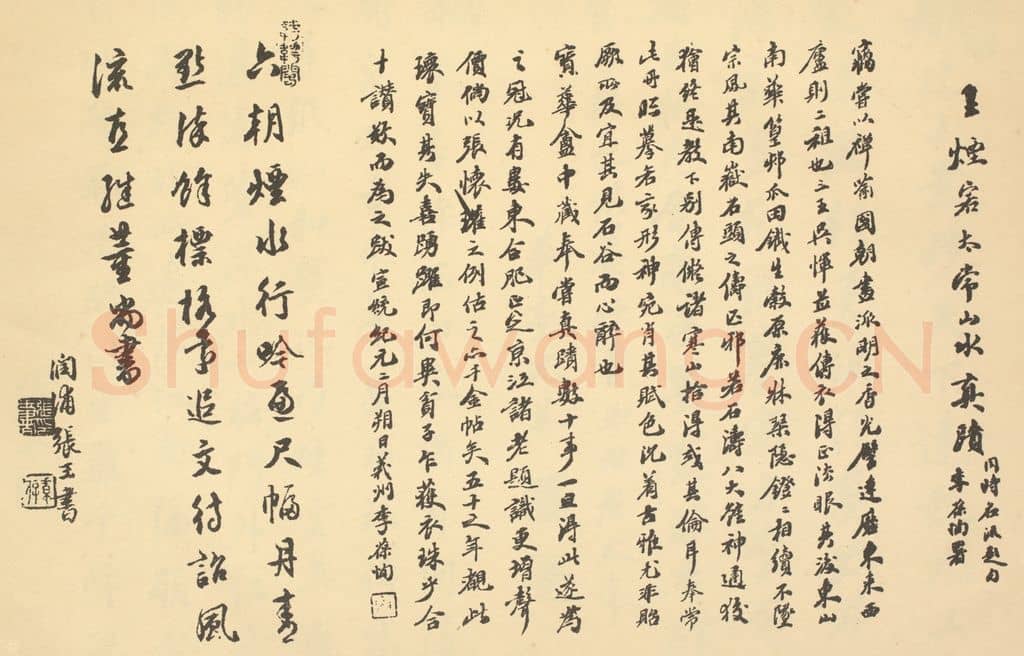 王煙客太常山水真蹟
同時石渠題句
李葆恂署
竊嘗以禪喻國朝畫派明之香光譬達磨東來西
廬則二祖也三王吳惲並蒞傳衣得正法眼其後東山
南華篁邨瓜田鐵生穀原琹隱鐙鐙相續不墮
宗風其南嶽石頭之儔匹邪若石濤八大雖神通狡
獪終是教下別傳儗諸寒山拾得或其倫耳奉常
此冊臨摹各家形神宛肖其賦色沉着古雅尤非貽
厥所及宜其見石谷而心醉也
寶華盦中藏奉嘗真蹟數十事一旦得此遂為
之冠況有婁東合肥正定京江諸老題識更增聲
價倘以張懷瓘之例估之亦千金帖矣五十之年覩此
瓌寶其失喜踴躍即何異貧子乍獲衣珠乎合
十讚歎而為之跋宣統紀元二月朔日義州李葆恂
六朝煙水行吟遍尺幅丹青
點染餘標格重追文待詔風
流直繼董尚書
潤浦張玉書
Shufawang.CN